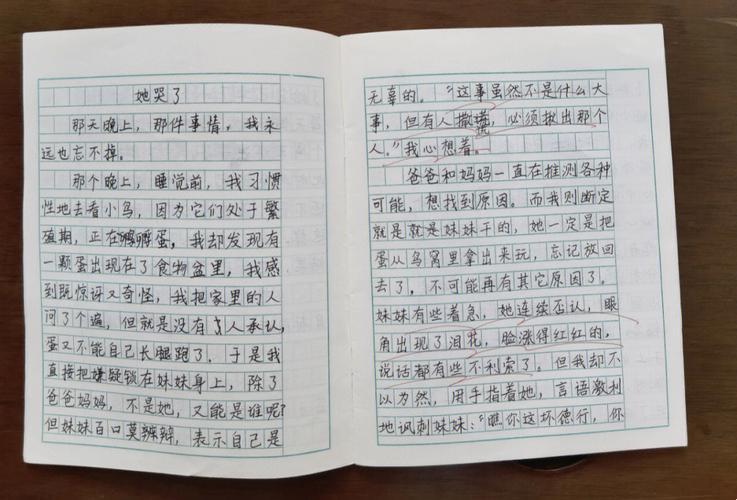 她哭了
那天晚上，那件事情。我永
远也忘不掉。
那个晚上，睡觉前，我习惯
性地去看小鸟，因为它们处于繁
殖期，正在孵蛋，我却发现有
一颗蛋出现在了食物盆里，我感
到既惊讶又奇怪，我把家里的人
问了个遍，但就是没有人承认，
蛋又不能自己长腿跑了，于是我
直接把嫌疑锁在妹妹身上，除了
爸爸妈妈，不是她，又能是谁呢？
但妹妹百口莫辩，表示自己是
无辜的。“这事虽然不是什么大
事，但有人撒谎，必须揪出那个
人。”我心想着。
爸爸和妈妈一直在推测各种
可能，想找到原因。而我则断定
就是就是妹妹干的，她一定是把
蛋从鸟窝里拿出来玩，忘记放回
去了，不可能再有其它原因了。
妹妹有些着急，她连续否认，眼
角出现了泪花，脸涨得红红的，
说话都有些不利索了。但我却不
以为然，用手指着她，言语激利
地讽刺妹妹：“瞧你这坏德行，你